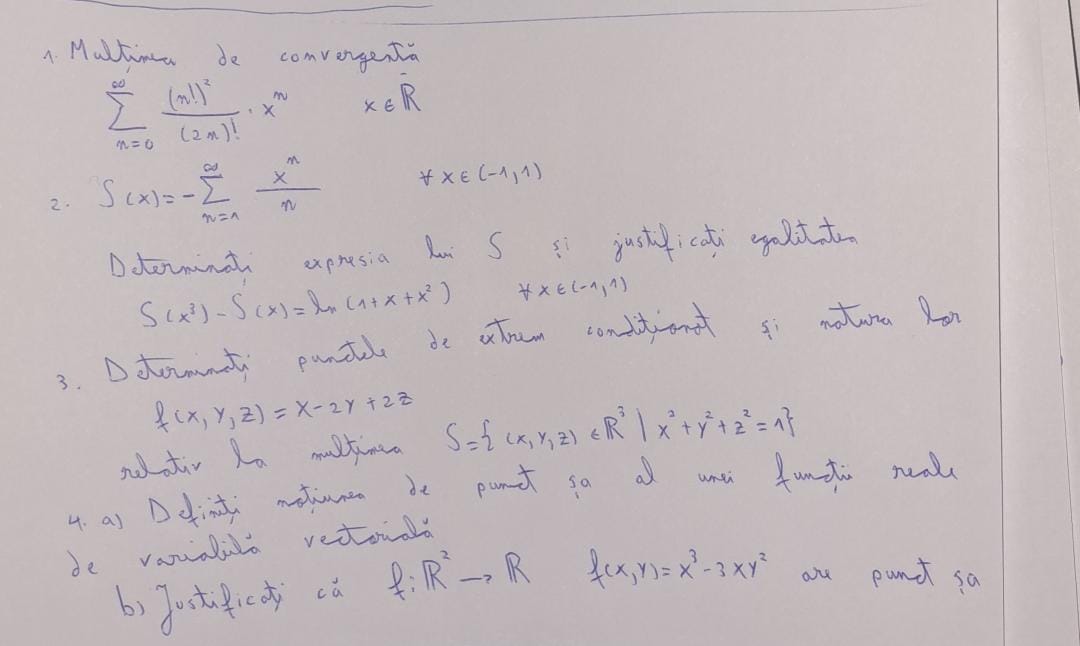 1. Mulțimea de convergență
∑_{n=0}^{∞} (n!)²/(2n)! · xⁿ    x ∈ ℝ
2. S(x) = -∑_{n=1}^{∞} xⁿ/n    ∀ x ∈ (-1,1)
Determinați expresia lui S și justificați egalitatea
S(x³) - S(x) = ln(1+x+x²)    ∀ x ∈ (-1,1)
3. Determinați punctele de extrem condiționat și natura lor
f(x,y,z) = x-2y+2z
relativ la mulțimea S={(x,y,z) ∈ ℝ³ | x²+y²+z²=1}
4. a) Definiți noțiunea de punct șa al unei funcții reale
de variabilă vectorială
b) Justificați că f: ℝ² → ℝ    f(x,y) = x³-3xy² are punct șa